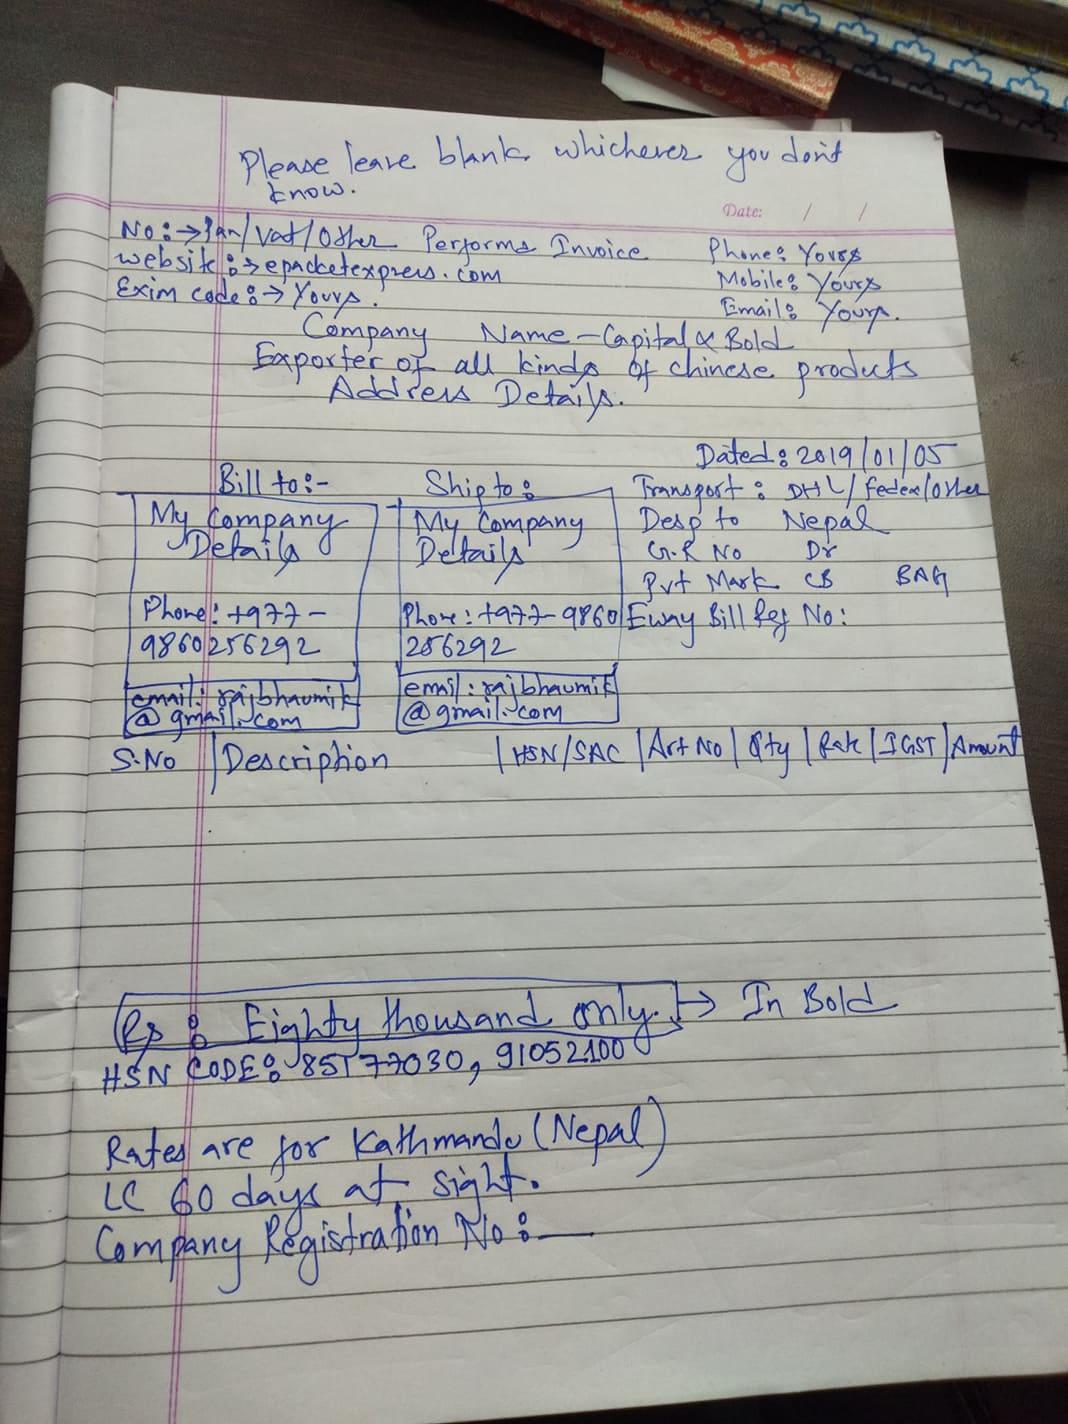 Please leave blank whichever you don't
know.
Date: / /
No:→Pan/Vat/Other Performa Invoice Phone: Yours
website:→epacketexpress.com Mobile: Yours
Exim code:→ Yours. Email: Yours.
Company Name - Capital & Bold
Exporter of all kinds of chinese products
Address Details.
Dated: 2019/01/05
Bill to:- Ship to: Transport: DHL/Fedex/Other
My Company My Company Desp to Nepal
Details Details G.R No Dr
Pvt Mark CB BAG
Phone: +977- Phone: +977-9860 Eway Bill Ref No:
9860256292 256292
email: rajbhaumik email: rajbhaumik
@gmail.com @gmail.com
S.No |Description |HSN/SAC |Art No |Qty |Rate |IGST |Amount
Rs: Eighty thousand only. → In Bold
HSN CODE: 85177030, 91052100
Rates are for Kathmandu (Nepal)
LC 60 days at sight.
Company Registration No:—